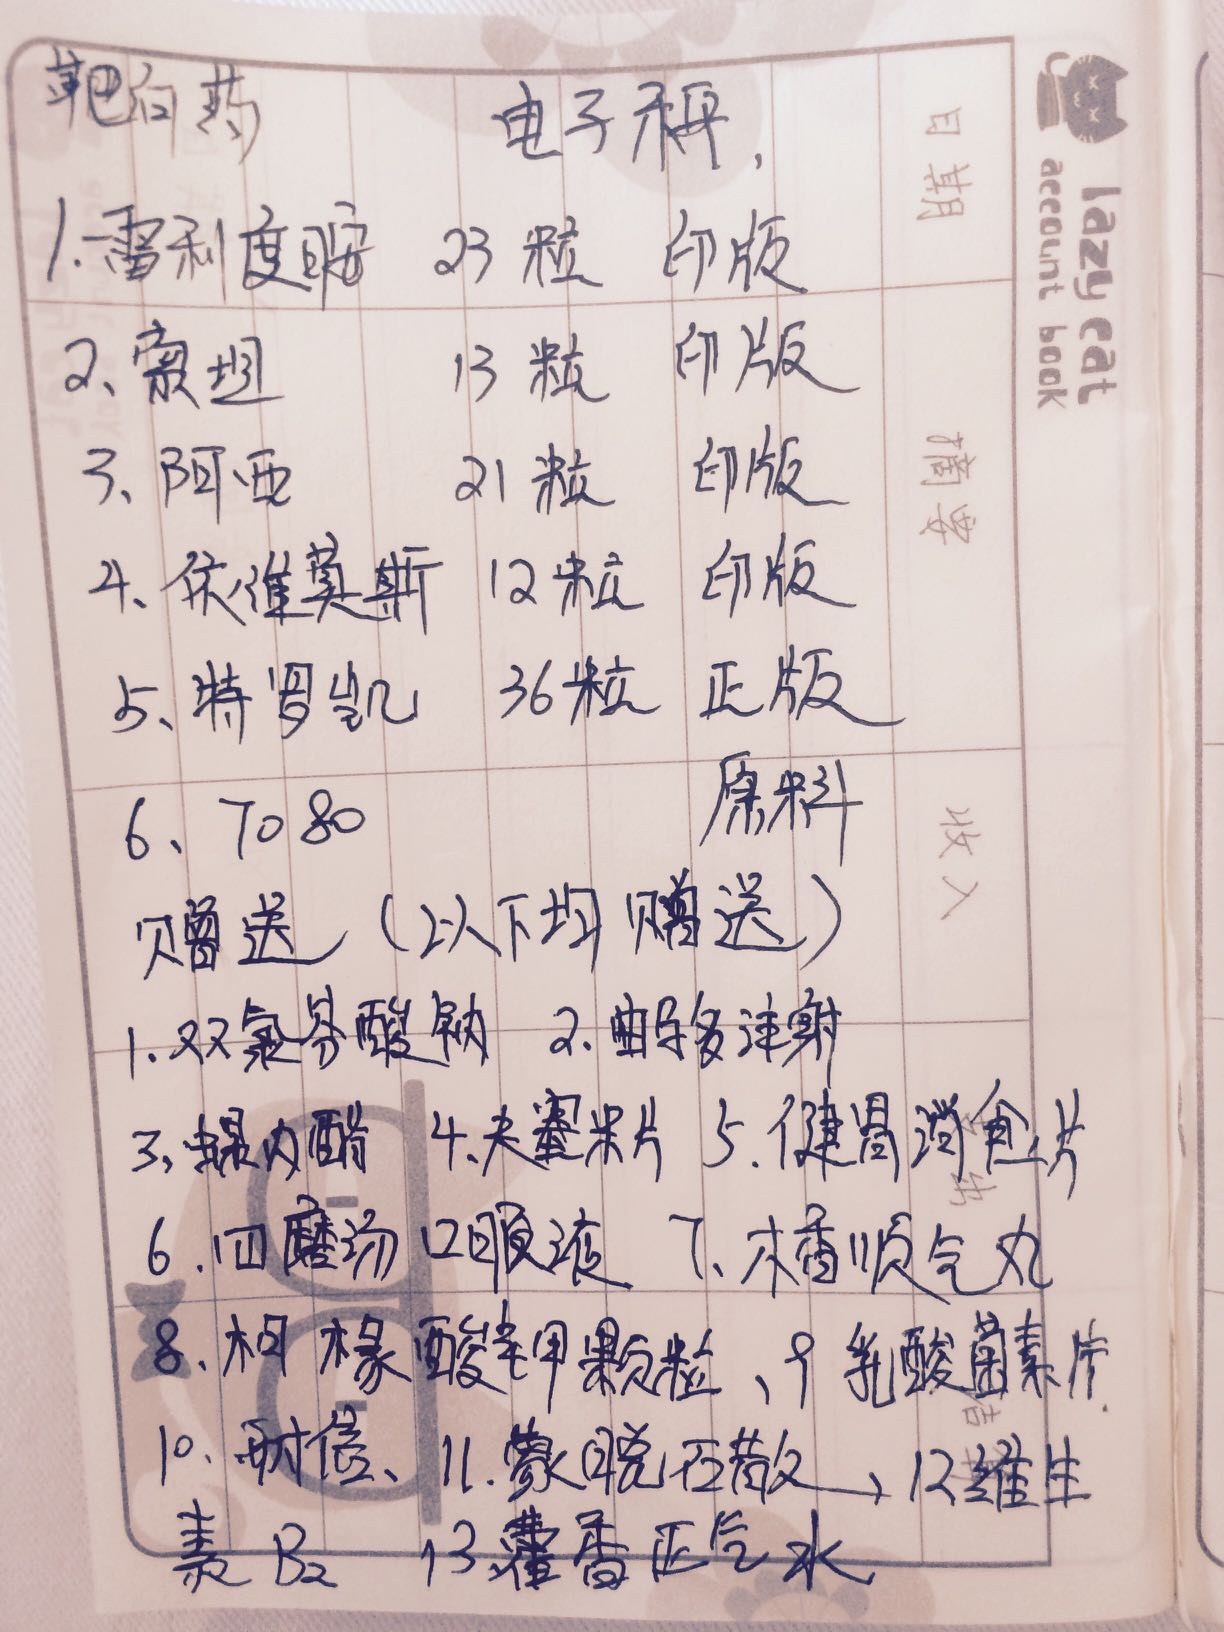 靶向药 电子秤，
1.雷利度胺 23粒 印版
2、索坦 13粒 印版
3、阿西 21粒 印版
4、依维莫斯 12粒 印版
5、特罗凯 36粒 正版
6、7080 原料
赠送（以下均赠送）
1.双氯芬酸钠 2.曲马多注射
3、螺内酯 4.大蜜米片 5.健胃消食片
6.四磨汤口服液 7、木香顺气丸
8、枸橼酸钾颗粒、9乳酸菌素片
10、耐信、11.蒙脱石散、12维生
素B2 13藿香正气水
lazy cat
account book
日期
摘要
收入
支出
结余